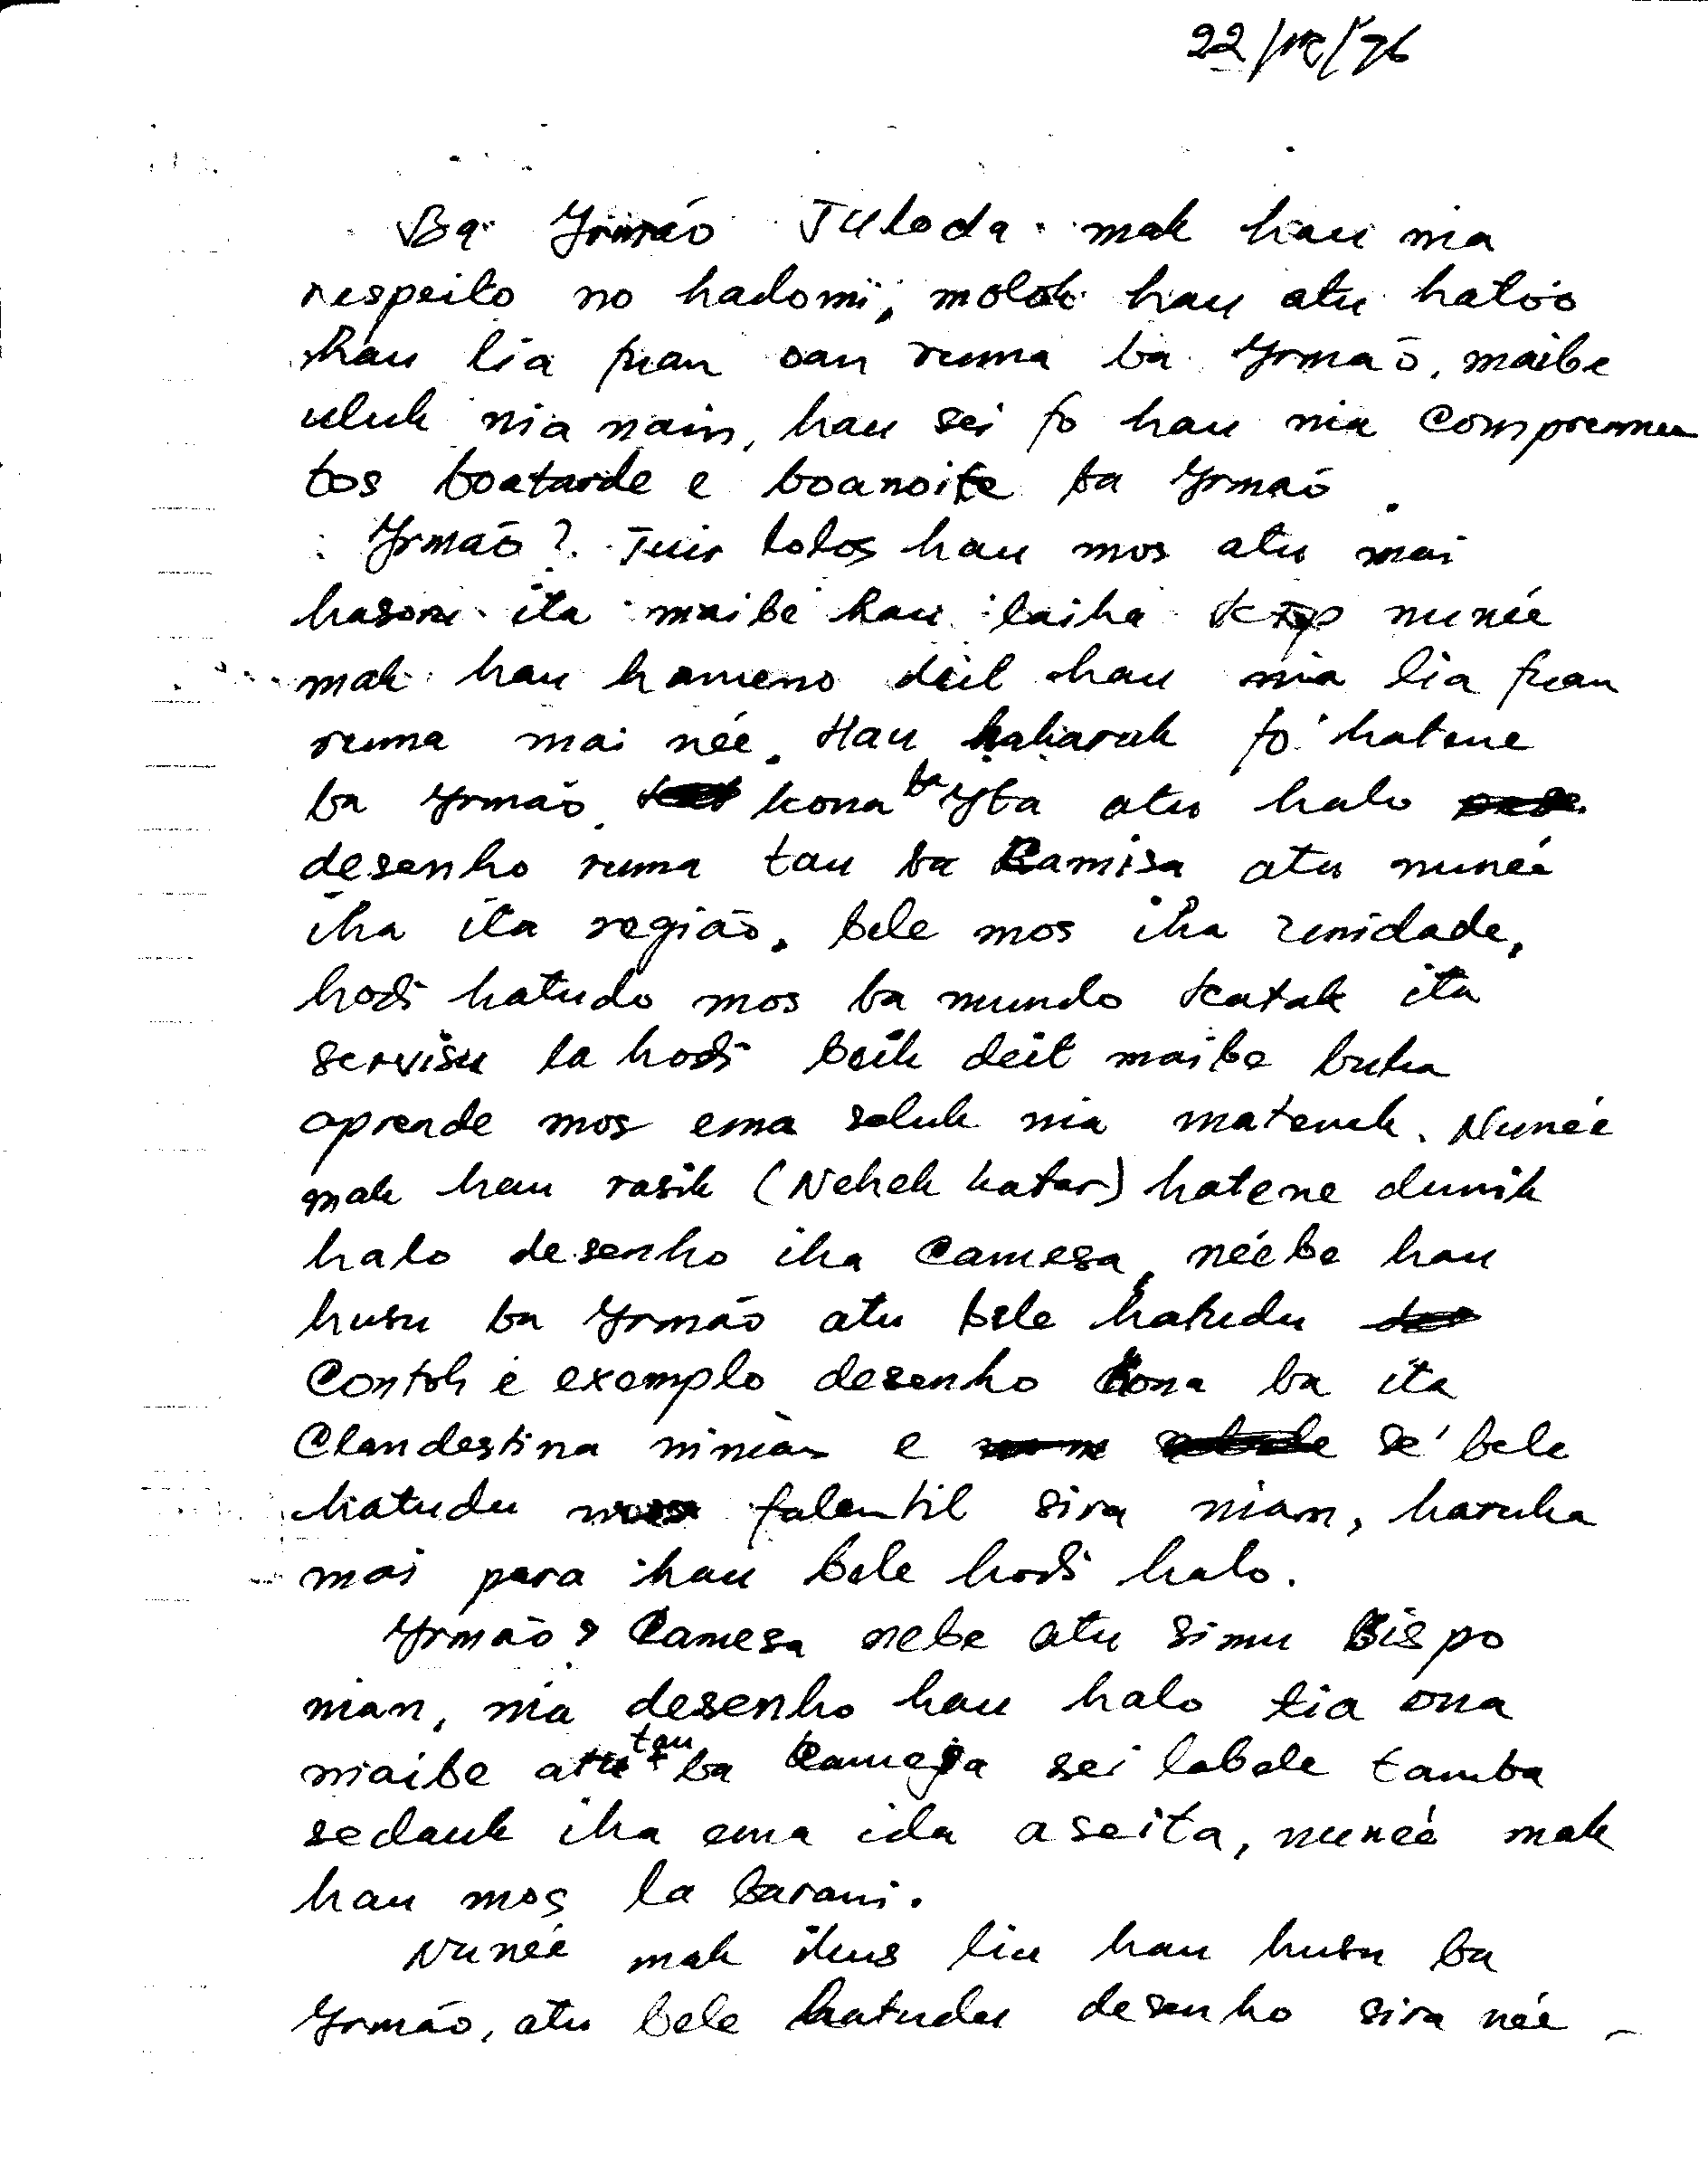 22/ /96
Ba Yrmão Tuloda mak hau nia
respeito no hadomi, molok hau atu hato'o
hau lia fuan oan ruma ba Yrmão, maibe
uluk nia nain, hau sei fo hau nia Compremen
tos boatarde e boanoite ba Yrmão.
Yrmão? Tuir lolos hau mos atu mai
hasoru ita maibe hau laiha nuneé
mak hau hameno deit hau nia lia fuan
ruma mai neé. Hau hakarak fo' hatene
ba Yrmão kona ba Yta atu halo
desenho ruma tau ba Camisa atu nuneé
iha ita região. bele mos iha unidade,
hodi hatudo mos ba mundo katak ita
servisu la hodi beik deit maibe buka
aprende mos ema seluk nia matenek. Nuneé
mak hau rasik (Nehek katar) hatene dunik
halo desenho iha Camesa, neébe hau
husu ba Yrmão atu bele hatudu
Contoh e exemplo desenho kona ba ita
Clandestina ninian e se' bele
hatudu falentil sira nian, haruka
mai para hau bele hodi halo.
Yrmão? Camesa nebe atu simu Bispo
nian, nia desenho hau halo tia ona
maibe atu tau ba Camesa sei labele tamba
sedauk iha ema ida aseita, nuneé mak
hau mos la barani.
Nuneé mak ikus liu hau husu ba
Yrmão, atu bele hatudu desenho sira neé -